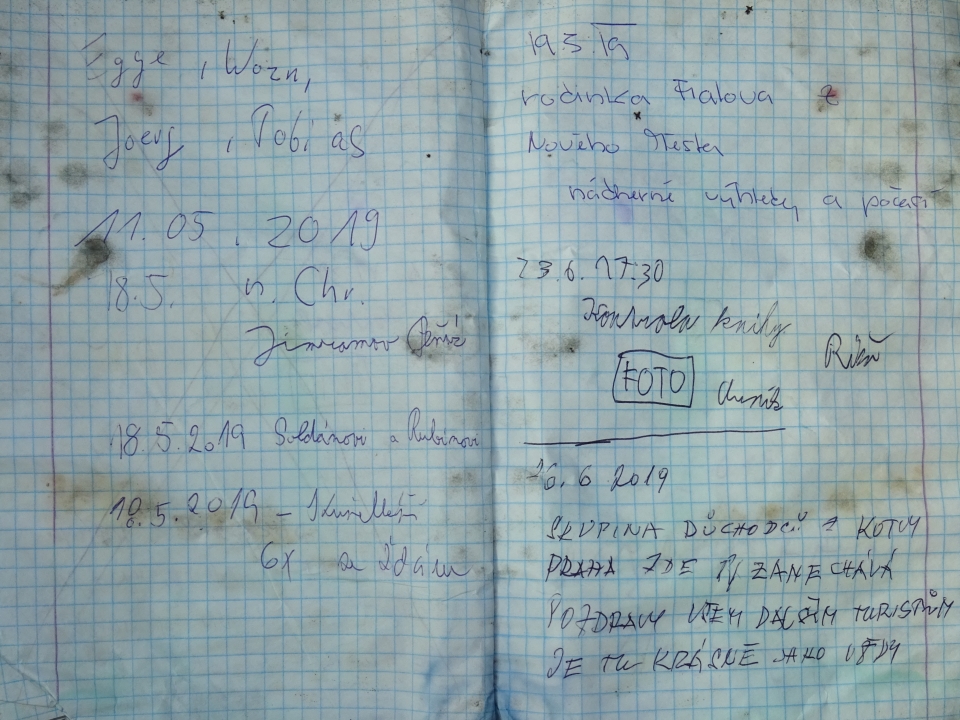 Egge, Worn,
Joerg, Tobias
11.05.2019
18.5. n. Chr.
Jimramov
18.5.2019 Soldánovi a Rubínovi
19.5.2019 -
6x
19.5.19
rodinka Fialova z
Nového Města
nádherné výhledy a počasí
23.6. 17:30
Kontrola knihy
FOTO
16.6 2019
SKUPINA DŮCHODCŮ Z KOTVY
PRAHA ZDE TJ ZANECHÁVÁ
POZDRAVY VŠEM DALŠÍM TURISTŮM
JE TU KRÁSNĚ JAKO VŽDY